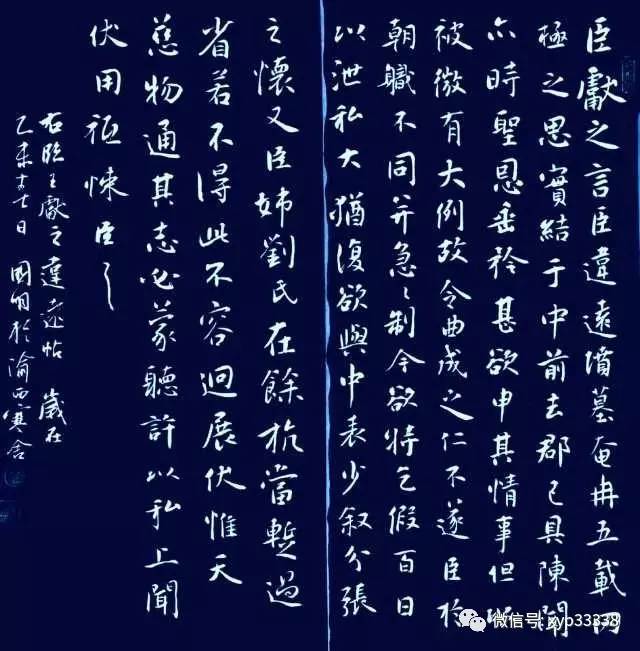 臣獻之言臣違遠墳墓奄冉五載罔
極之思實結于中前去郡已具陳聞
尒時聖恩垂矜甚欲申其情事但以
被徵有大例故令曲成之仁不遂臣於
朝職不同并急〻制今欲特乞假百日
以泄私大猶復欲與中表少叙分張
之懷又臣姊劉氏在餘杭當蹔過
省若不得此不容迴展伏惟天
慈物通其志必蒙聽許以私上聞
伏用祗悚臣
右臨王獻之違遠帖 歲在
乙未 日 國 於渝西寒舍
微信号: xyb33338